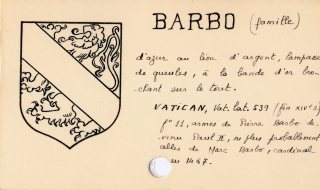 BARBO (famille)
d'azur au lion d'argent, lampassé
de gueules, à la bande d'or bro-
chant sur le tout.
VATICAN, Vat. lat. 539 (fin XIVe s)
f° 11, armes de Pierre Barbo de-
venu Paul II, ou plus probablement
celles de Marc Barbo, cardinal
en 1447.